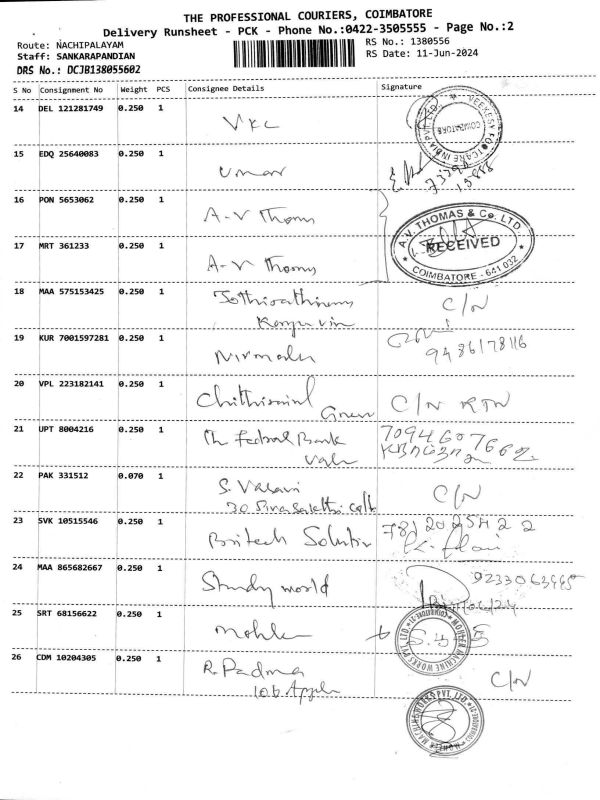 THE PROFESSIONAL COURIERS, COIMBATORE
Delivery Runsheet - PCK - Phone No.:0422-3505555 - Page No.:2
Route: NACHIPALAYAM
Staff: SANKARAPANDIAN
DRS No.: DCJB138055602
RS No.: 1380556
RS Date: 11-Jun-2024
S No Consignment No Weight PCS Consignee Details Signature
14 DEL 121281749 0.250 1
VKC
VEEKESY FOOTCARE INDIA PVT. LTD.
COIMBATORE
15 EDQ 25640083 0.250 1
Umar
16 PON 5653062 0.250 1
A-V Thomas
17 MRT 361233 0.250 1
A-V Thomas
A.V. THOMAS & Co. LTD.
RECEIVED
COIMBATORE - 641 032
18 MAA 575153425 0.250 1
C/N
19 KUR 7001597281 0.250 1
Nirmala
9486178116
20 VPL 223182141 0.250 1
C/N RTN
21 UPT 8004216 0.250 1
The Federal Bank
7094607662
22 PAK 331512 0.070 1
C/N
23 SVK 10515546 0.250 1
Britech Solution
24 MAA 865682667 0.250 1
Study world
25 SRT 68156622 0.250 1
Mohler
MOHLER MACHINE WORKS PVT. LTD.
26 CDM 10204305 0.250 1
R. Padma
C/N
MOHLER MACHINE WORKS PVT. LTD.